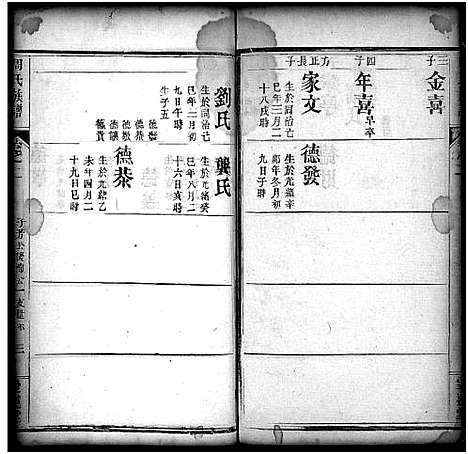 三子
金喜
四子
年喜早卒
方正長子
家文
生於同治己
巳年三月二
十八戌時
德發
生於光緒辛
卯年冬月初
九日子時
劉氏
生於同治己
巳年二月初
九日午時
生子五
龔氏
生於光緒癸
巳年八月二
十六日亥時
德發
德恭
德儀
德貴
德恭
生於光緒乙
未年四月二
十九日巳時
周氏族譜